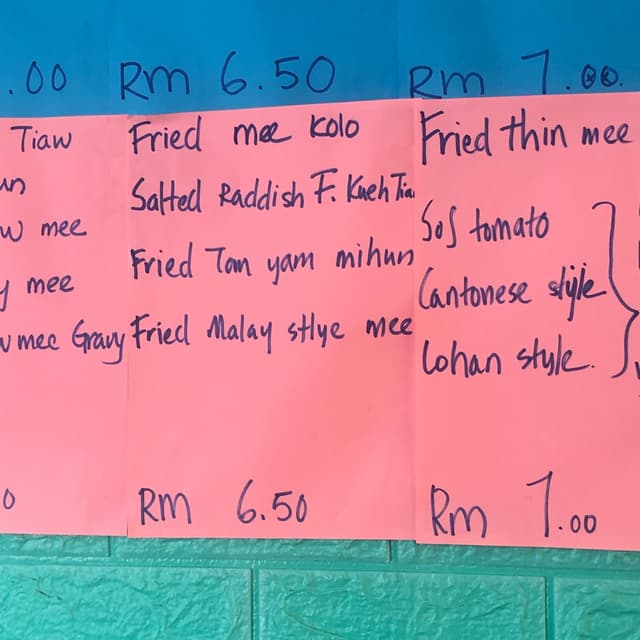 .00
Tiaw
mee
mee
mee Gravy
0
Rm 6.50
Fried mee Kolo
Salted Raddish F. Kueh Tia
Fried Tom yam mihun
Fried Malay stlye mee
RM 6.50
Rm 7.00.
Fried thin mee
Sos tomato
Cantonese style
Lohan style.
Rm 7.00